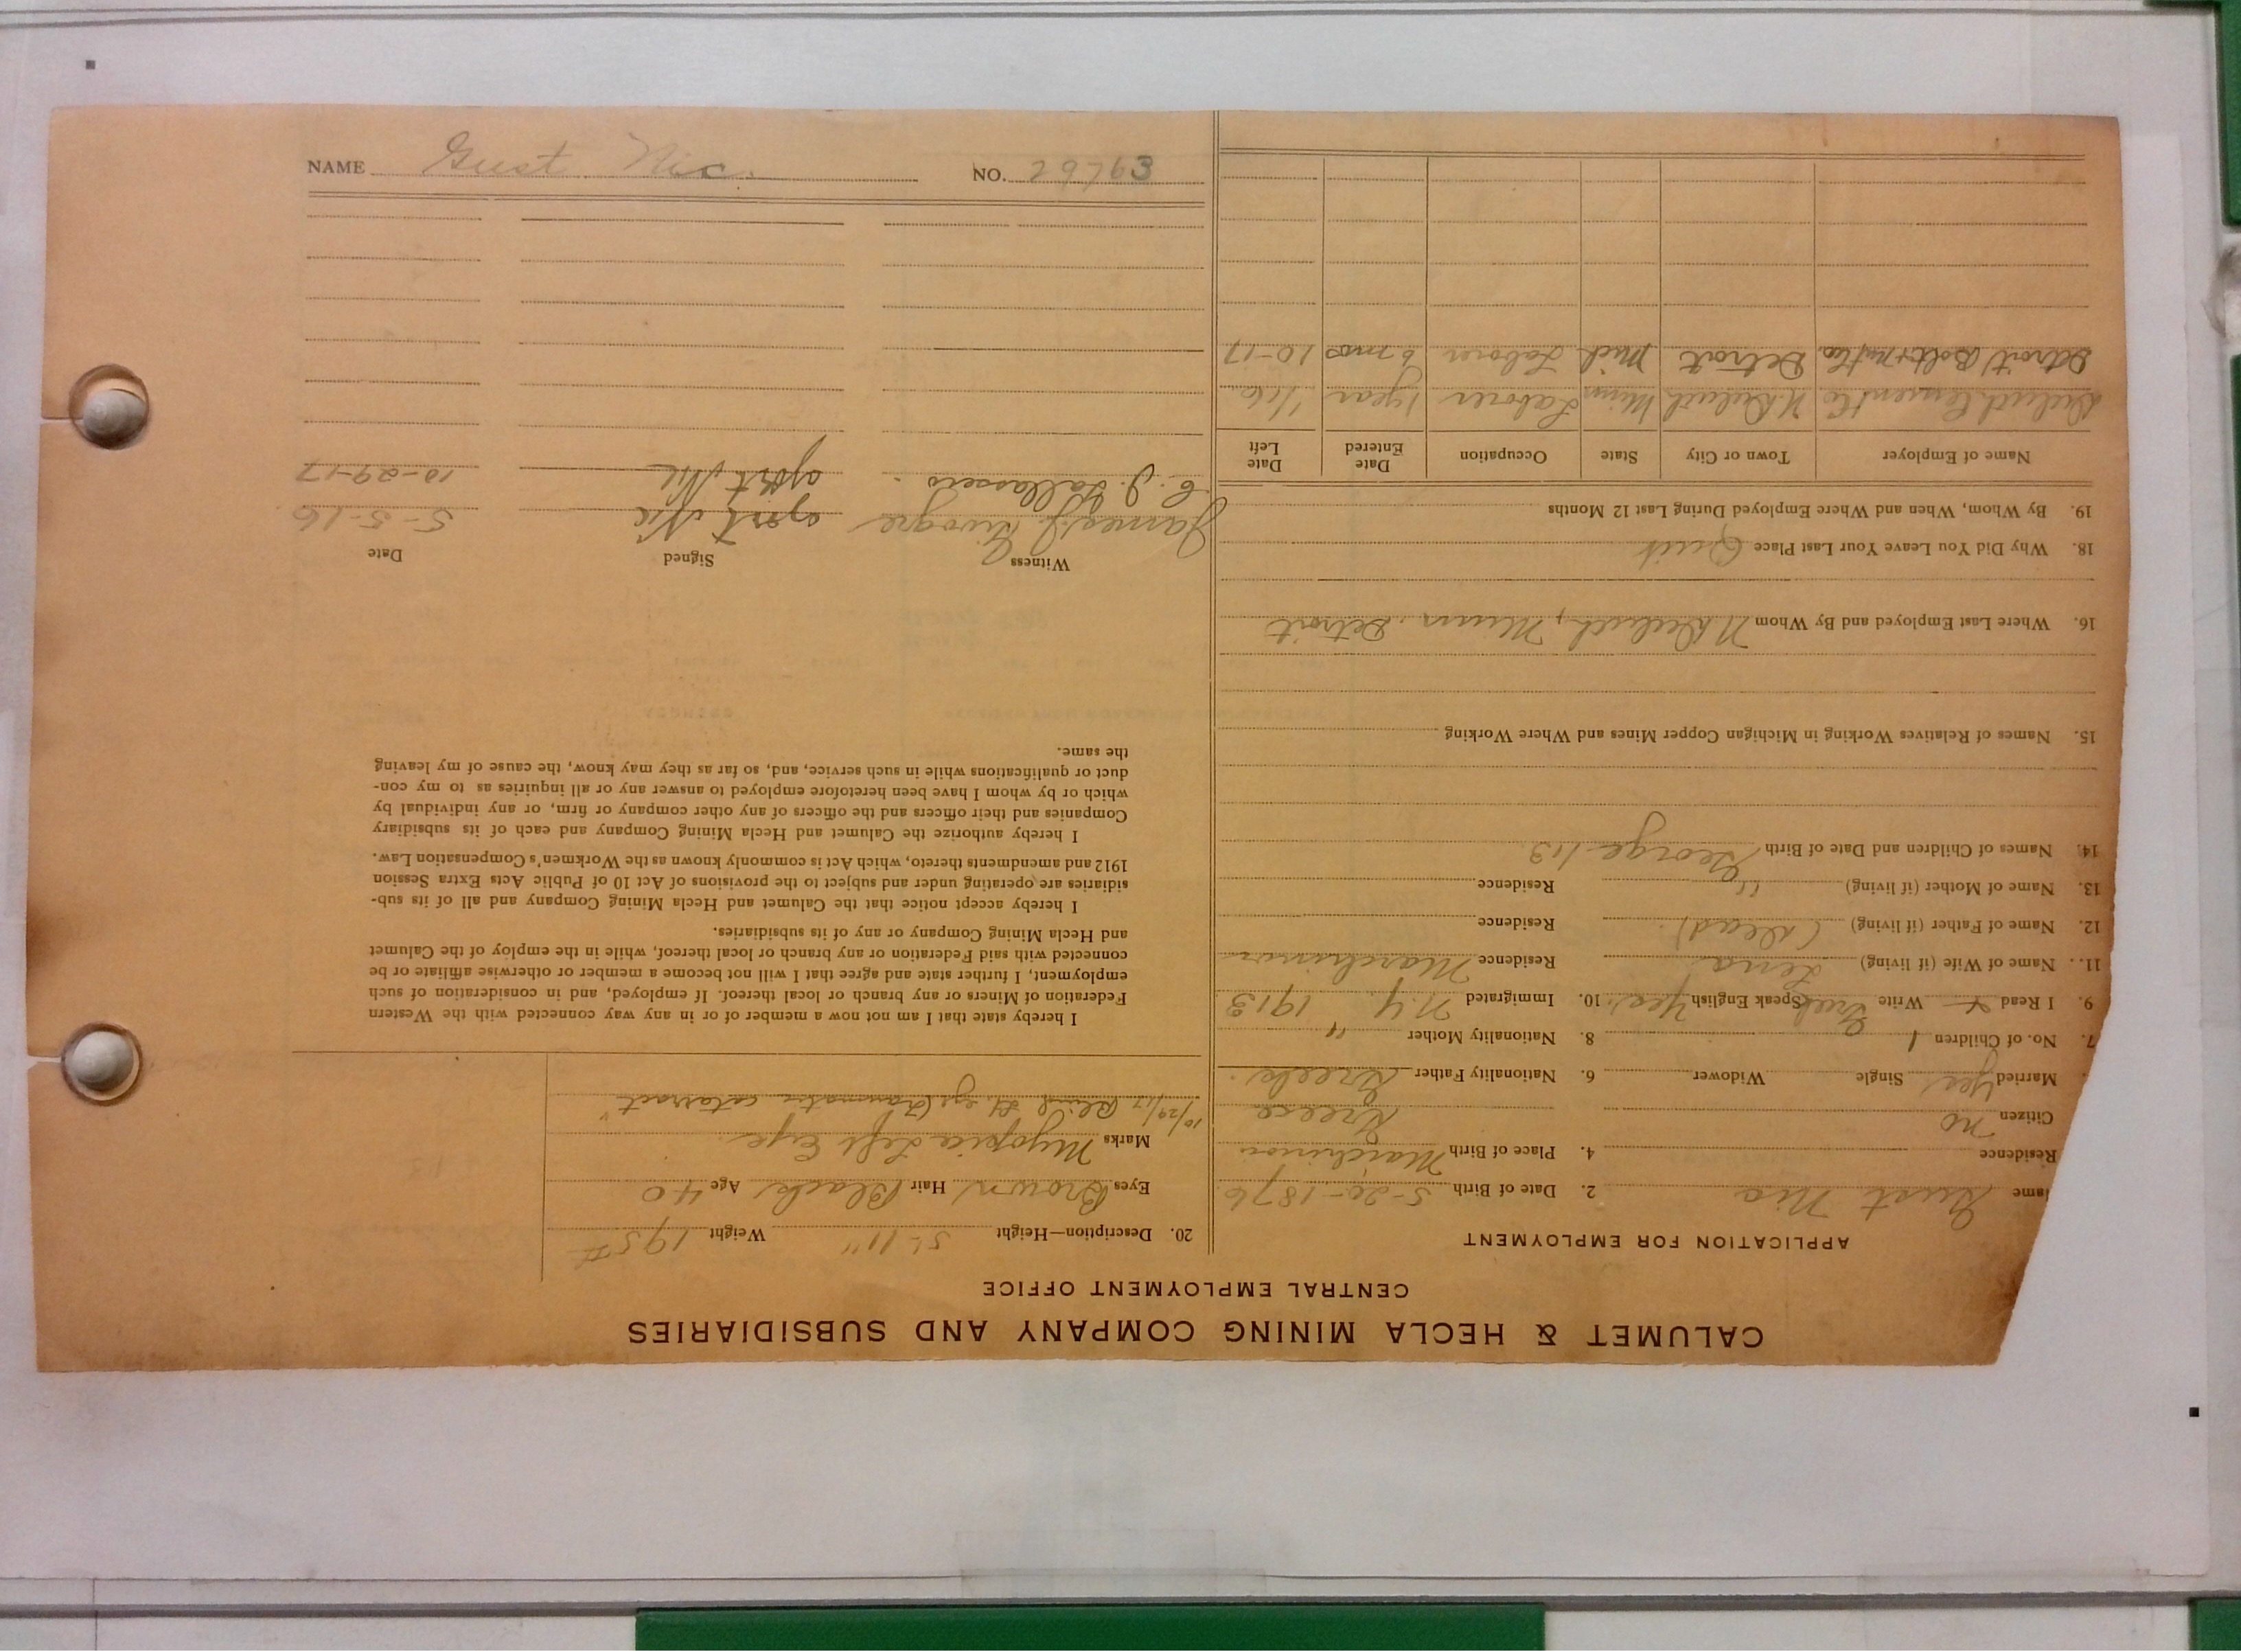 CALUMET & HECLA MINING COMPANY AND SUBSIDIARIES
CENTRAL EMPLOYMENT OFFICE
APPLICATION FOR EMPLOYMENT
ame Gust Nic 2. Date of Birth 5-20-1876
Residence 4. Place of Birth
Citizen no Greece
Married Yes Single Widower 6. Nationality Father Greek
7. No. of Children 1 8. Nationality Mother "
9. I Read Write Greek Speak English Yes 10. Immigrated N.Y. 1913
11. Name of Wife (if living) Lena Residence
12. Name of Father (if living) (Dead) Residence
13. Name of Mother (if living) " Residence
14. Names of Children and Date of Birth George
15. Names of Relatives Working in Michigan Copper Mines and Where Working
16. Where Last Employed and By Whom N Duluth, Minn. Detroit
18. Why Did You Leave Your Last Place Quit
19. By Whom, When and Where Employed During Last 12 Months
Name of Employer Town or City State Occupation Date Entered Date Left
Duluth Cement Co N. Duluth Minn Laborer 1 year 1/16
Detroit Bolt & Nut Co. Detroit Mich Laborer 6 mos 10-17
20. Description—Height 5'-11" Weight 195#
Eyes Brown Hair Black Age 40
Marks Myopia Left Eye
10/29/17 Blind Lt. eye (Traumatic cataract"
I hereby state that I am not now a member of or in any way connected with the Western
Federation of Miners or any branch or local thereof. If employed, and in consideration of such
employment, I further state and agree that I will not become a member or otherwise affiliate or be
connected with said Federation or any branch or local thereof, while in the employ of the Calumet
and Hecla Mining Company or any of its subsidiaries.
I hereby accept notice that the Calumet and Hecla Mining Company and all of its sub-
sidiaries are operating under and subject to the provisions of Act 10 of Public Acts Extra Session
1912 and amendments thereto, which Act is commonly known as the Workmen's Compensation Law.
I hereby authorize the Calumet and Hecla Mining Company and each of its subsidiary
Companies and their officers and the officers of any other company or firm, or any individual by
which or by whom I have been heretofore employed to answer any or all inquiries as to my con-
duct or qualifications while in such service, and, so far as they may know, the cause of my leaving
the same.
Witness Signed Date
James J. Nic 5-5-16
C. J. Nic 10-29-17
NAME Gust Nic. NO. 29763